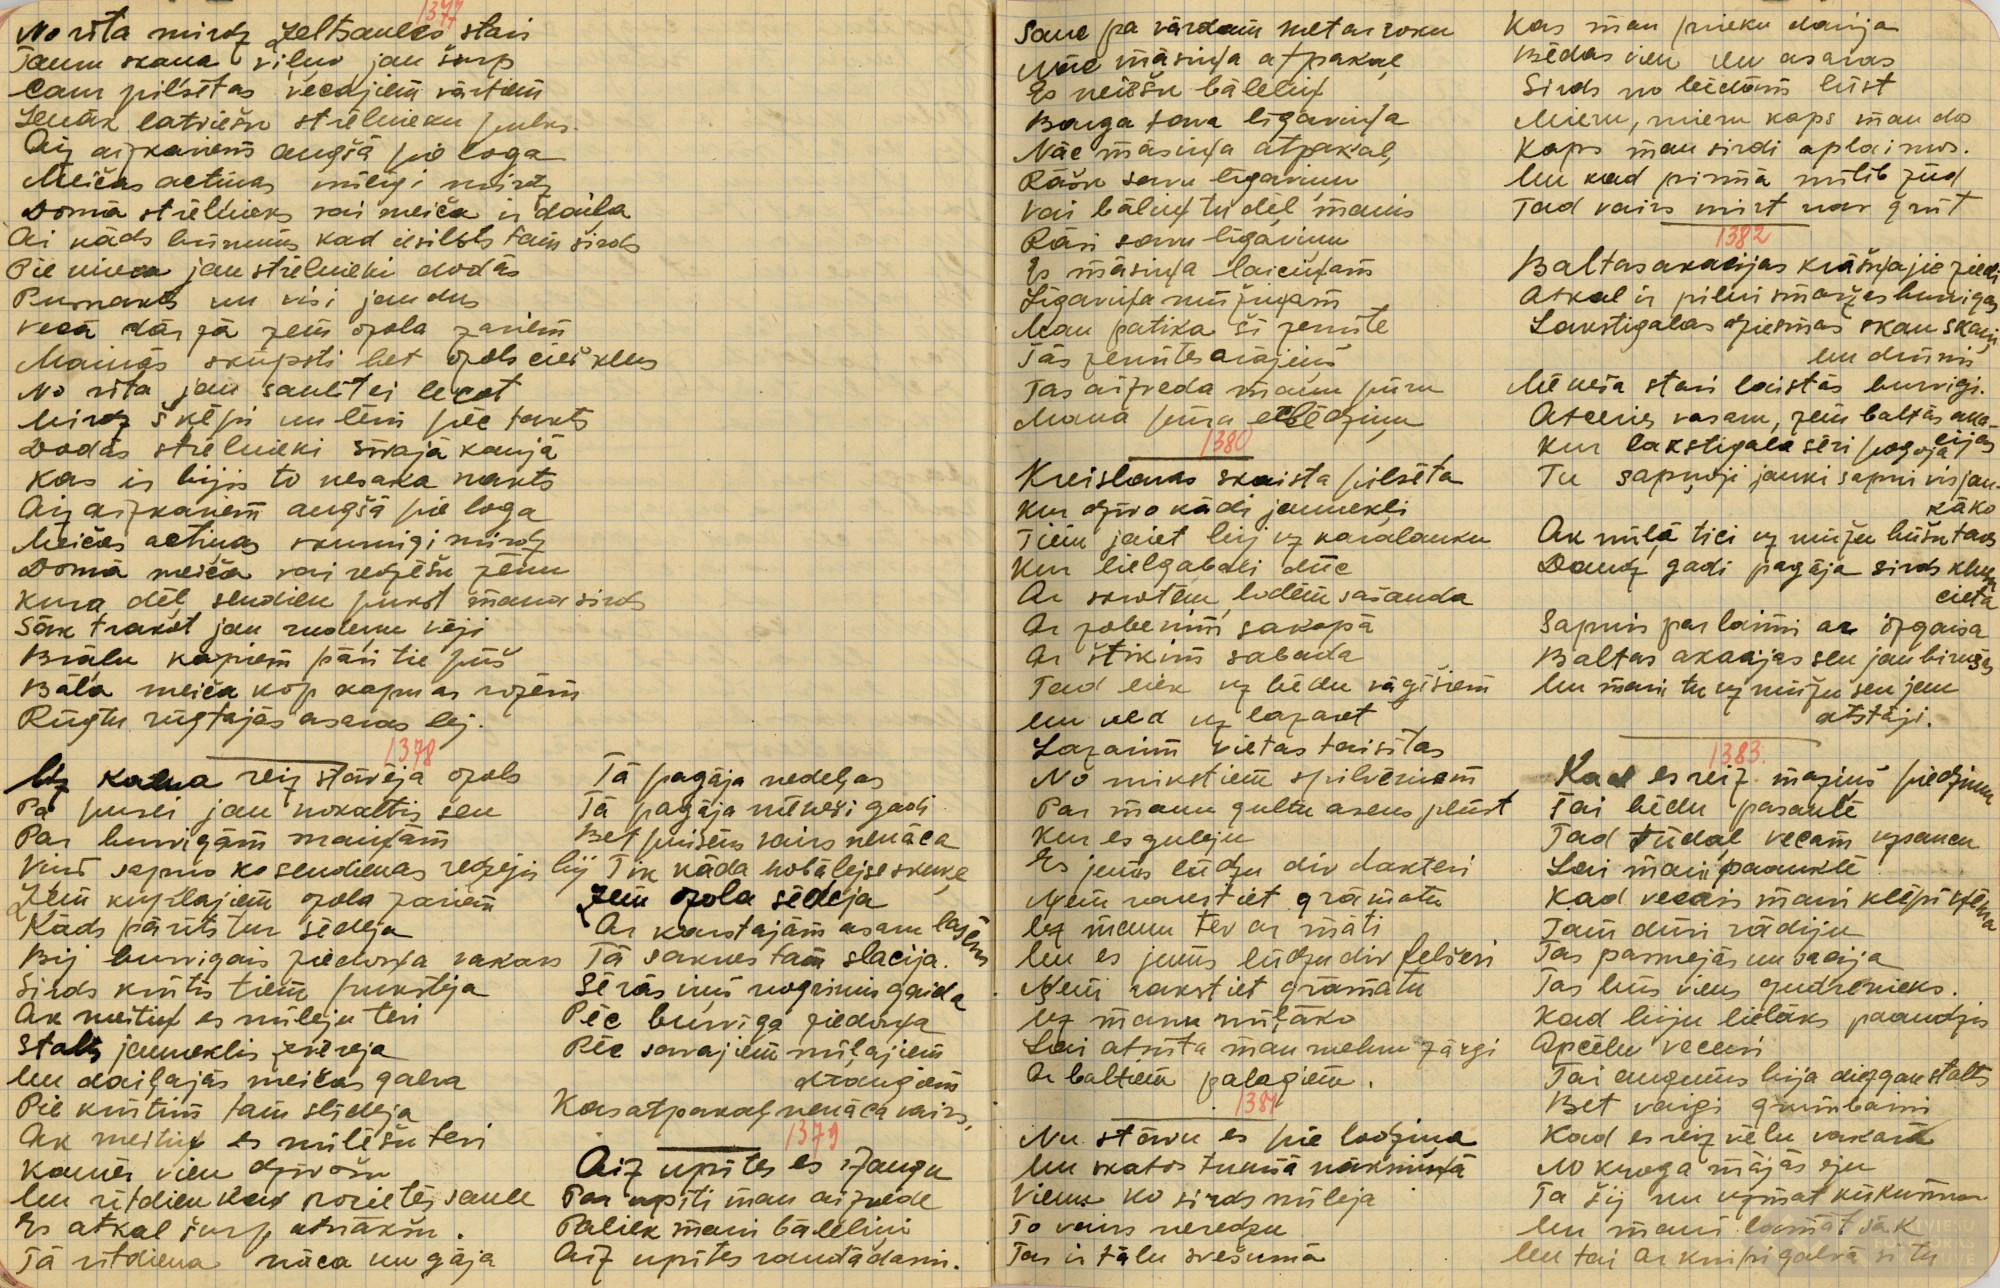 1377
No rīta mirdz zeltsaules stari
Taure skana vilņo jau šurp
Caur pilsētas vecajiem vārtiem
Ienāk latviešu strēlnieku pulks.
Aiz aizkariem augšā pie loga
Meičas actiņas mīlīgi mirdz
Domā strēlnieks vai meiča ir daiļa
Ai kāds burvums kad iesilst tam sirds
Pie miera jau strēlnieki dodās
Pusnakts un visi jau dus
Vecā dārzā zem ozola zariem
Mainās skūpsti bet ozols cieš klus
No rīta jau saulītei lecot
Mirdz šķēpi un tēri pēc takts
Dodās strēlnieki sīvajā kaujā
Kas ir bijis to nesaka nakts
Aiz aizkariem augšā pie loga
Meičas actiņas skumīgi mirdz
Domā meiča vai redzēšu zēnu
Kura dēļ sendien pukst mana sirds
Sāk trakot jau rudenu vēji
Brāļu kapiem pāri tie pūš
Bāla meiča kop kapu ar rozēm
Rūgtu rūgtajās asaras lej.
1378
Uz kalna reiz stāvēja ozols
Pa pusei jau nokaltis sen
Par burvīgām maiņām
Viņš sapņo ko sendienās redzējis bij
Zem kuplajiem ozola zariem
Kāds pārītis tur sēdēja
Bij burvīgais ziedoņa vakars
Sirds krūtīs tiem pukstēja
Ak meitiņ es mīlēju tevi
Stalts jauneklis zvērēja
Un daiļajās meičas galva
Pie krūtīm tam slīdēja
Ak meitiņ es mīlēšu tevi
Kamēr vien dzīvošu
Un rītdien kad norietēs saule
Es atkal šurp atnākšu.
Tā rītdiena nāca un gāja
Tā pagāja nedeļas
Tā pagāja mēneši gadi
Bet puisēns vairs nenāca
Tik kāda nobālējse skuķe
Zem ozola sēdeja
Ar karstajām asaru lāsēm
Tā saknes tam slacija.
Sērās viņš nogrimis gaida
Pēc burvīgā ziedoņa
Pēc savajiem mīļajiem
draugiem
Kas atpakaļ nenāca vairs.
1379
Aiz upītes es izaugu
Par upīti man aizvede
Paliek mani bāleliņi
Aiz upītes raudādami.
Sauc pa vārdam met ar roku
Nāc māsiņa atpakaļ
Es neiešu bāleliņ
Barga tava līgaviņa
Nāc māsiņa atpakaļ
Rāšu savu līgaviņu
Vai bāliņ tu dēļ manis
Rāsi savu līgaviņu
Es māsiņa laiciņam
Līgaviņa mūžiņam
Man patika šī zemīte
Tās zemītes arājiņš
Tas aizveda manu pūru
Manā pūra
1380
Kreislavas skaista pilsēta
Kur dzīvo kādi jaunekļi
Tiem jaiet bij uz karalauku
Kur lielgabali dūc
Ar skrotēm, lodēm sašauda
Ar zobeniņi sakapā
Ar štikiņi sabada
Tad liek uz bēdu vāģišiem
Un ved uz lazaret
Lazarim vietas taisītas
No mīkstiem spilvēniem
Par manu gultu asens plūst
Kur es gulēju
Es jums lūdzu div dakteri
Ņem rakstiet grāmatu
Uz manu tēv ar māti
Un es jums lūdzu div felšeri
Ņem rakstiet grāmatu
Uz manu mīļāko
Lai atsūta man melnu zārgi
Ar baltiem palagiem.
1381
Nu stāvu es pie lodziņa
Un skatos tumšā naksniņā
Vienu ko sirds mīlēja
To vairs neredzu
Tas ir tālu svešumā
Kas man prieku darija
Bēdas vien un asaras
Sirds no bēdām lūst
Mieru, mieru kaps man dos
Kaps man sirdi aplaimos.
Un kad pirmā mīlib zūd
Tad vairs mirt nav grūt
1382
Baltas akacijas krāšņajie ziedi
Atkal ir pilni smaržas burvigas
Lakstigalas dziesmas skan skaņi
un drūmi
Mēneša stari laistās burvigi.
Atceries vasaru, zem baltās aka-
cijas
Kur lakstigala sēri pogoja
Tu sapņoji jauki sapni visjau-
kāko
Ak mīļā tici uz mūžu būšu tavs
Daudz gadi pagāja sirds kļuva
cieta
Sapnis par laimi ar izgaisa
Baltas akacijas sen jau birušas
Un mani tu uz mūžu sen jau
atstāji.
1383.
Kad es reiz maziņš piedzimu
Tai bēdu pasaulē
Tad tūdaļ vecam uzsauca
Lai mani paauklē
Kad vecais mani klēpī ņēma
Tam dūri rādiju
Tas pasmejās un sacija
Tas būs viens gudrenieks.
Kad biju lielāks paaudzis
Apcēlu veceni
Tai augums bija diezgan stalts
Bet vaigi grumbaini
Kad es reiz vēlu vakarā
No kroga mājās eju
Ta šij nu uzmat kūkumu
Un mani lamāt sāk
Un tai ar krupi galvā situ